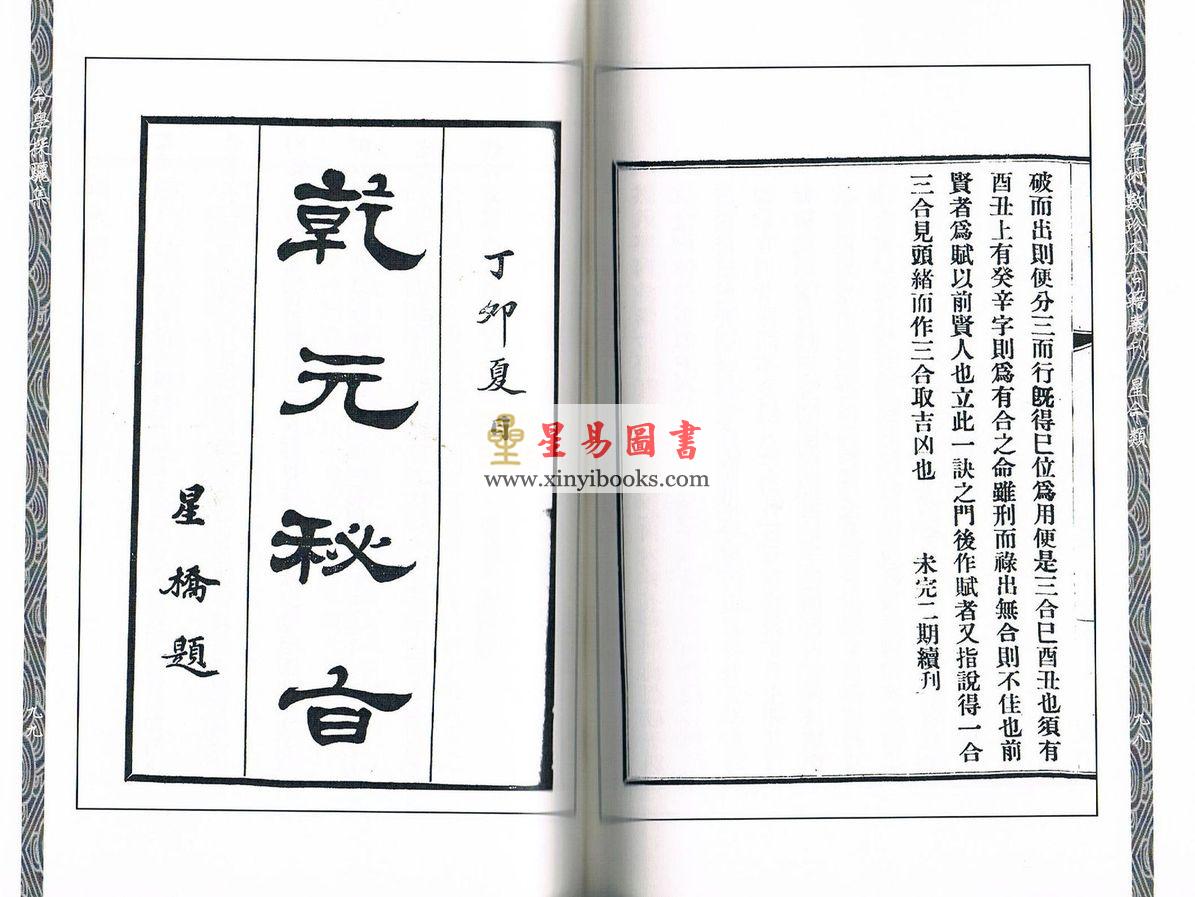 心一堂術數珍本古籍叢刊 星命類
九八
破而出則便分三而行既得巳位爲用便是三合巳酉丑也須有
酉丑上有癸辛字則爲有合之命雖刑而祿出無合則不佳也前
賢者爲賦以前賢人也立此一訣之門後作賦者又指說得一合
三合見頭緒而作三合取吉凶也
未完二期續刋
丁卯夏月
乾元秘旨
星橋題
命學探驪集
九九
星易圖書
www.xinyibooks.com